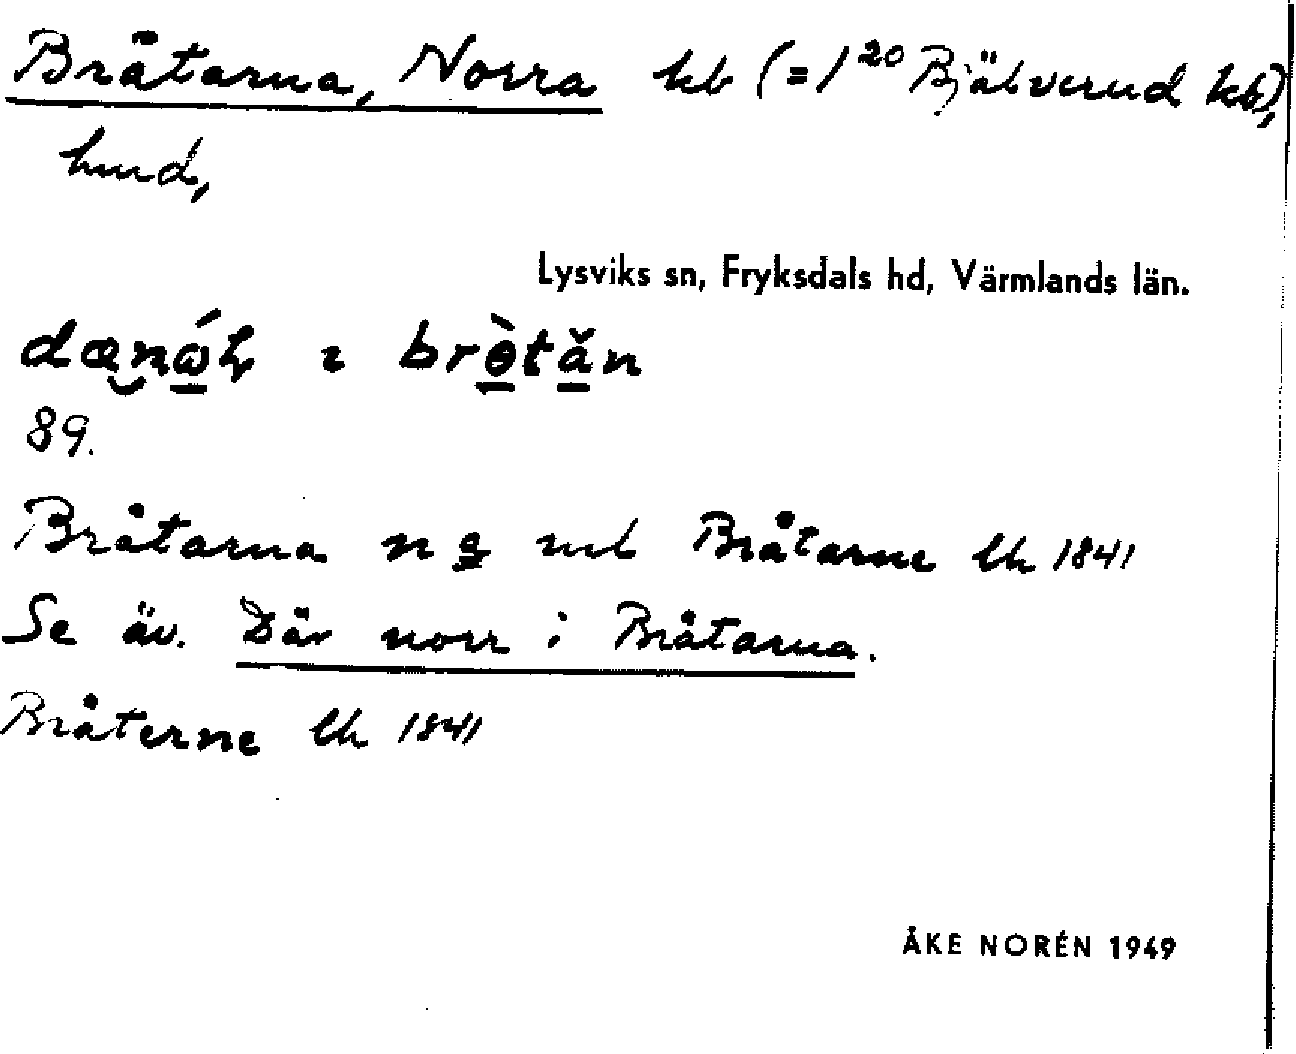 Bråtarna, Norra kb (= 1²⁰ Bjälverud kb),
hmd,
Lysviks sn, Fryksdals hd, Värmlands län.
ı brètăn
89.
Bråtarna n o Bråtarne lk 1841
Se äv. Där norr i Bråtarna.
Bråterne lk 1841
ÅKE NORÉN 1949